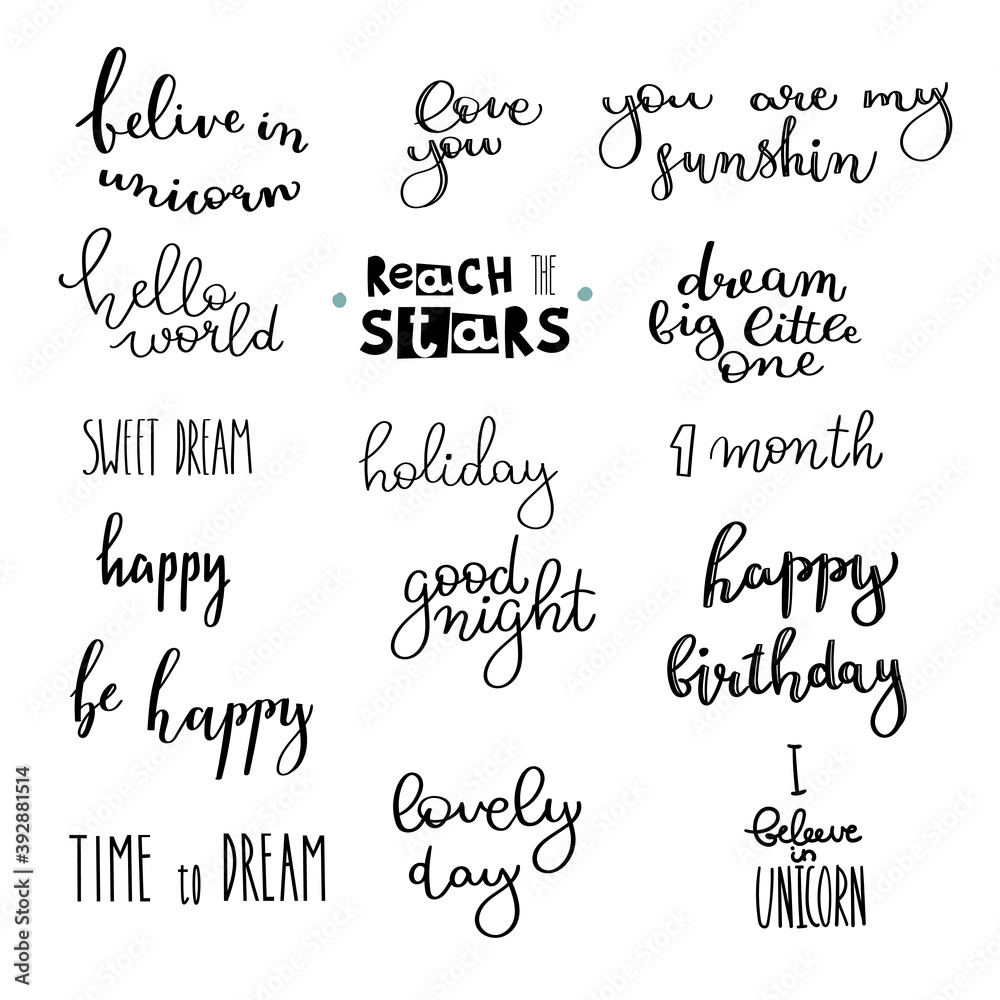 belive in
unicorn
love
you
you are my
sunshin
hello
world
ReaCH THE
StaRS
dream
big little
one
SWEET DREAM
holiday
1 month
happy
good
night
happy
birthday
be happy
lovely
day
I
beleeve
in
UNICORN
TIME to DREAM
Adobe Stock | #392881514